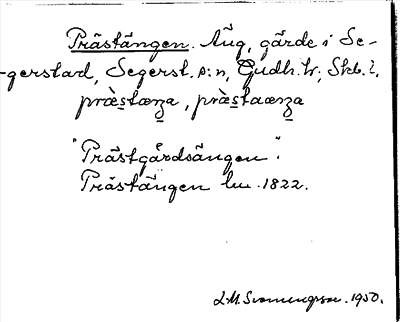 Prästängen. Äng, gärde i Se-
-gerstad, Segerst. s:n, Gudh. hr; Skb. l.
præ̀stæŋa, præ̀staæŋa
"Prästgårdsängen".
Prästängen lm. 1822.
1950.